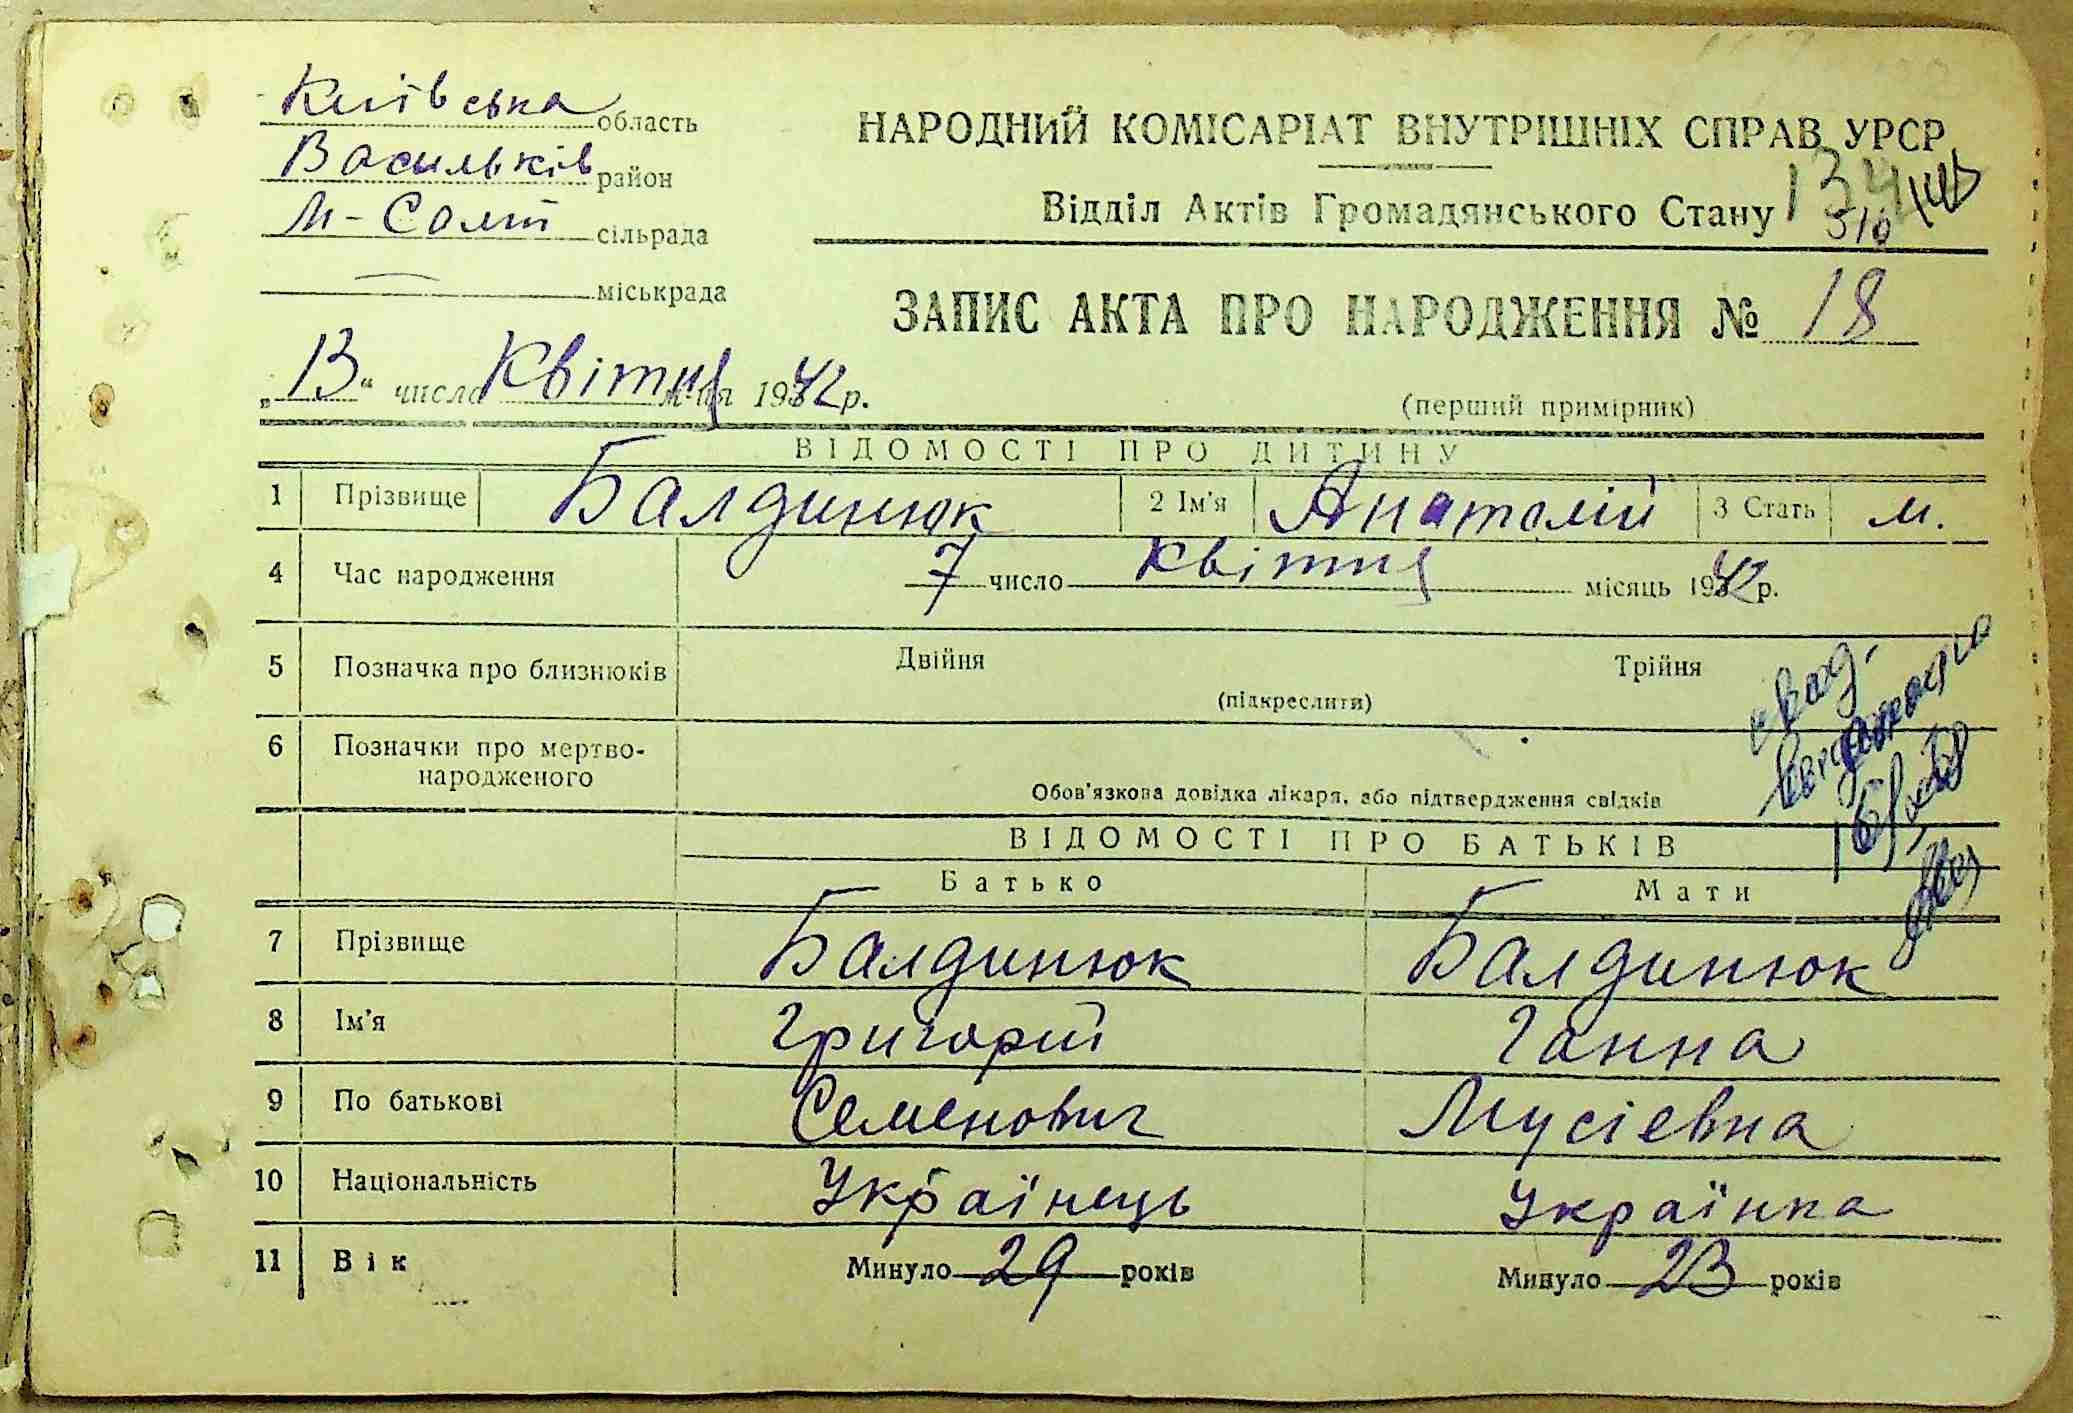 Київська область
Васильків район
М-Солт сільрада
міськрада
НАРОДНИЙ КОМІСАРІАТ ВНУТРІШНІХ СПРАВ УРСР
Відділ Актів Громадянського Стану
134
510
ЗАПИС АКТА ПРО НАРОДЖЕННЯ № 18
„13“ число Квітня м-ця 1942 р.
(перший примірник)
ВІДОМОСТІ ПРО ДИТИНУ
1 Прізвище Балдинюк 2 Ім'я Анатолій 3 Стать м.
4 Час народження 7 число квітня місяць 1942 р.
5 Позначка про близнюків Двійня Трійня
(підкреслити)
6 Позначки про мертво-
народженого
Обов'язкова довідка лікаря, або підтвердження свідків
ВІДОМОСТІ ПРО БАТЬКІВ
Батько Мати
7 Прізвище Балдинюк Балдинюк
8 Ім'я Григорій Ганна
9 По батькові Семенович Мусієвна
10 Національність Українець Українка
11 Вік Минуло 29 років Минуло 23 років